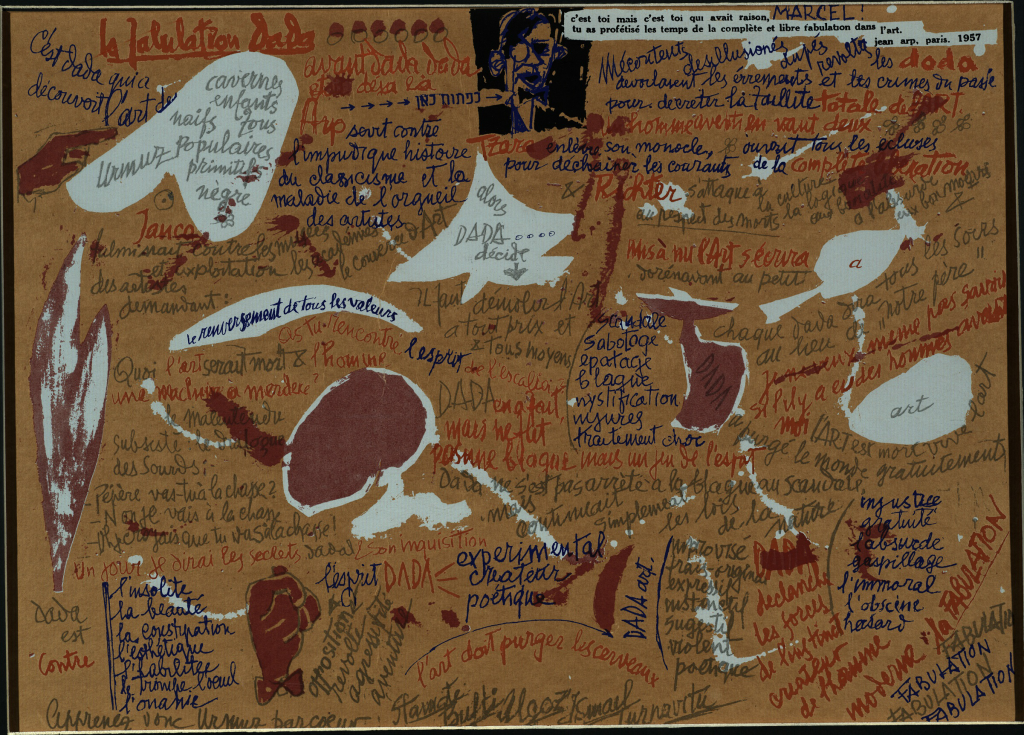 la fabulation Dada
C'est dada qui a
découvert l'art des
cavernes
enfants
naïfs fous
Urmuz populaires
primitifs
nègre
avant dada dada
était déjà là
כפתום כאן
c'est toi mais c'est toi qui avait raison, MARCEL!
tu as profétisé les temps de la complète et libre fabulation dans l'art.
jean arp, paris. 1957
Mécontents desillusionés dupés revoltés les dada
devoilant les érrements et les crimes du passé
pour decreter la faillite totale de l'ART
l'homme averti en vaut deux
Arp sevit contre
l'impudique histoire
du classicisme et la
maladie de l'orgueil
des artistes
Tzara enlève son monocle, ouvrent tous les écluses
pour déchainer les courants de la complète fabulation
& Richter s'attaque à la culture
au respect des morts
la logique
aux bonnes mœurs
à l'absurde
&
alors
DADA ....
décide
Janco
fulminait contre les musées
et exploitation les académies
des artistes le couvert d'Art
demandant:
le renversement de tous les valeurs
Mis à nu l'Art s'écrira a
dorénavant au petit
Il faut démolir l'Art
a tout prix et
& tous moyens
scandale
sabotage
épatage
blague
mystification
injures
traitement choc
chaque dada dira tous les jours
au lieu de "notre père"
je ne veux même pas savoir
s'il y a eu des hommes avant
moi
DADA
art
l'ART est mort vive l'art
As tu rencontré l'esprit de l'escalier?
Quoi l'art serait mort & l'homme
une machine a merdee?
le malentendu
subsiste le dialogue
des sourds:
- Pépère vas-tu à la chasse?
- Non je vais à la chasse
- Ah je croyais que tu vas à la chasse!
Un jour je dirai les secrets dada & son inquisition
DADA en a fait
mais ne fut
pas une blague mais un jeu de l'esprit
a purgé le monde gratuitement
Dada ne s'est pas arrêté a la blague au scandale,
mais continuait simplement les lois de la nature
dada
est
contre
l'insolite
la beauté
la constipation
l'esthétique
l'habilité
le trompe l'oeuil
l'onanie
l'esprit DADA
opposition
revolte
agressivité
aventure
experimental
créateur
poétique
l'art doit purger les cerveaux
DADA art
improvisé
frais original
expressif
instinctif
sugestif
violent
poétique
DADA
declanche
les forces
de l'instinct
créateur
de l'homme
moderne: la FABULATION
injustice
gratuité
l'absurde
gaspillage
l'immoral
l'obscène
hasard
FABULATION
FABULATION
FABULATION
FABULATION
Apprenez donc Urmuz par coeur! Stamate Fulfi Algazi Ismael Turnavitu